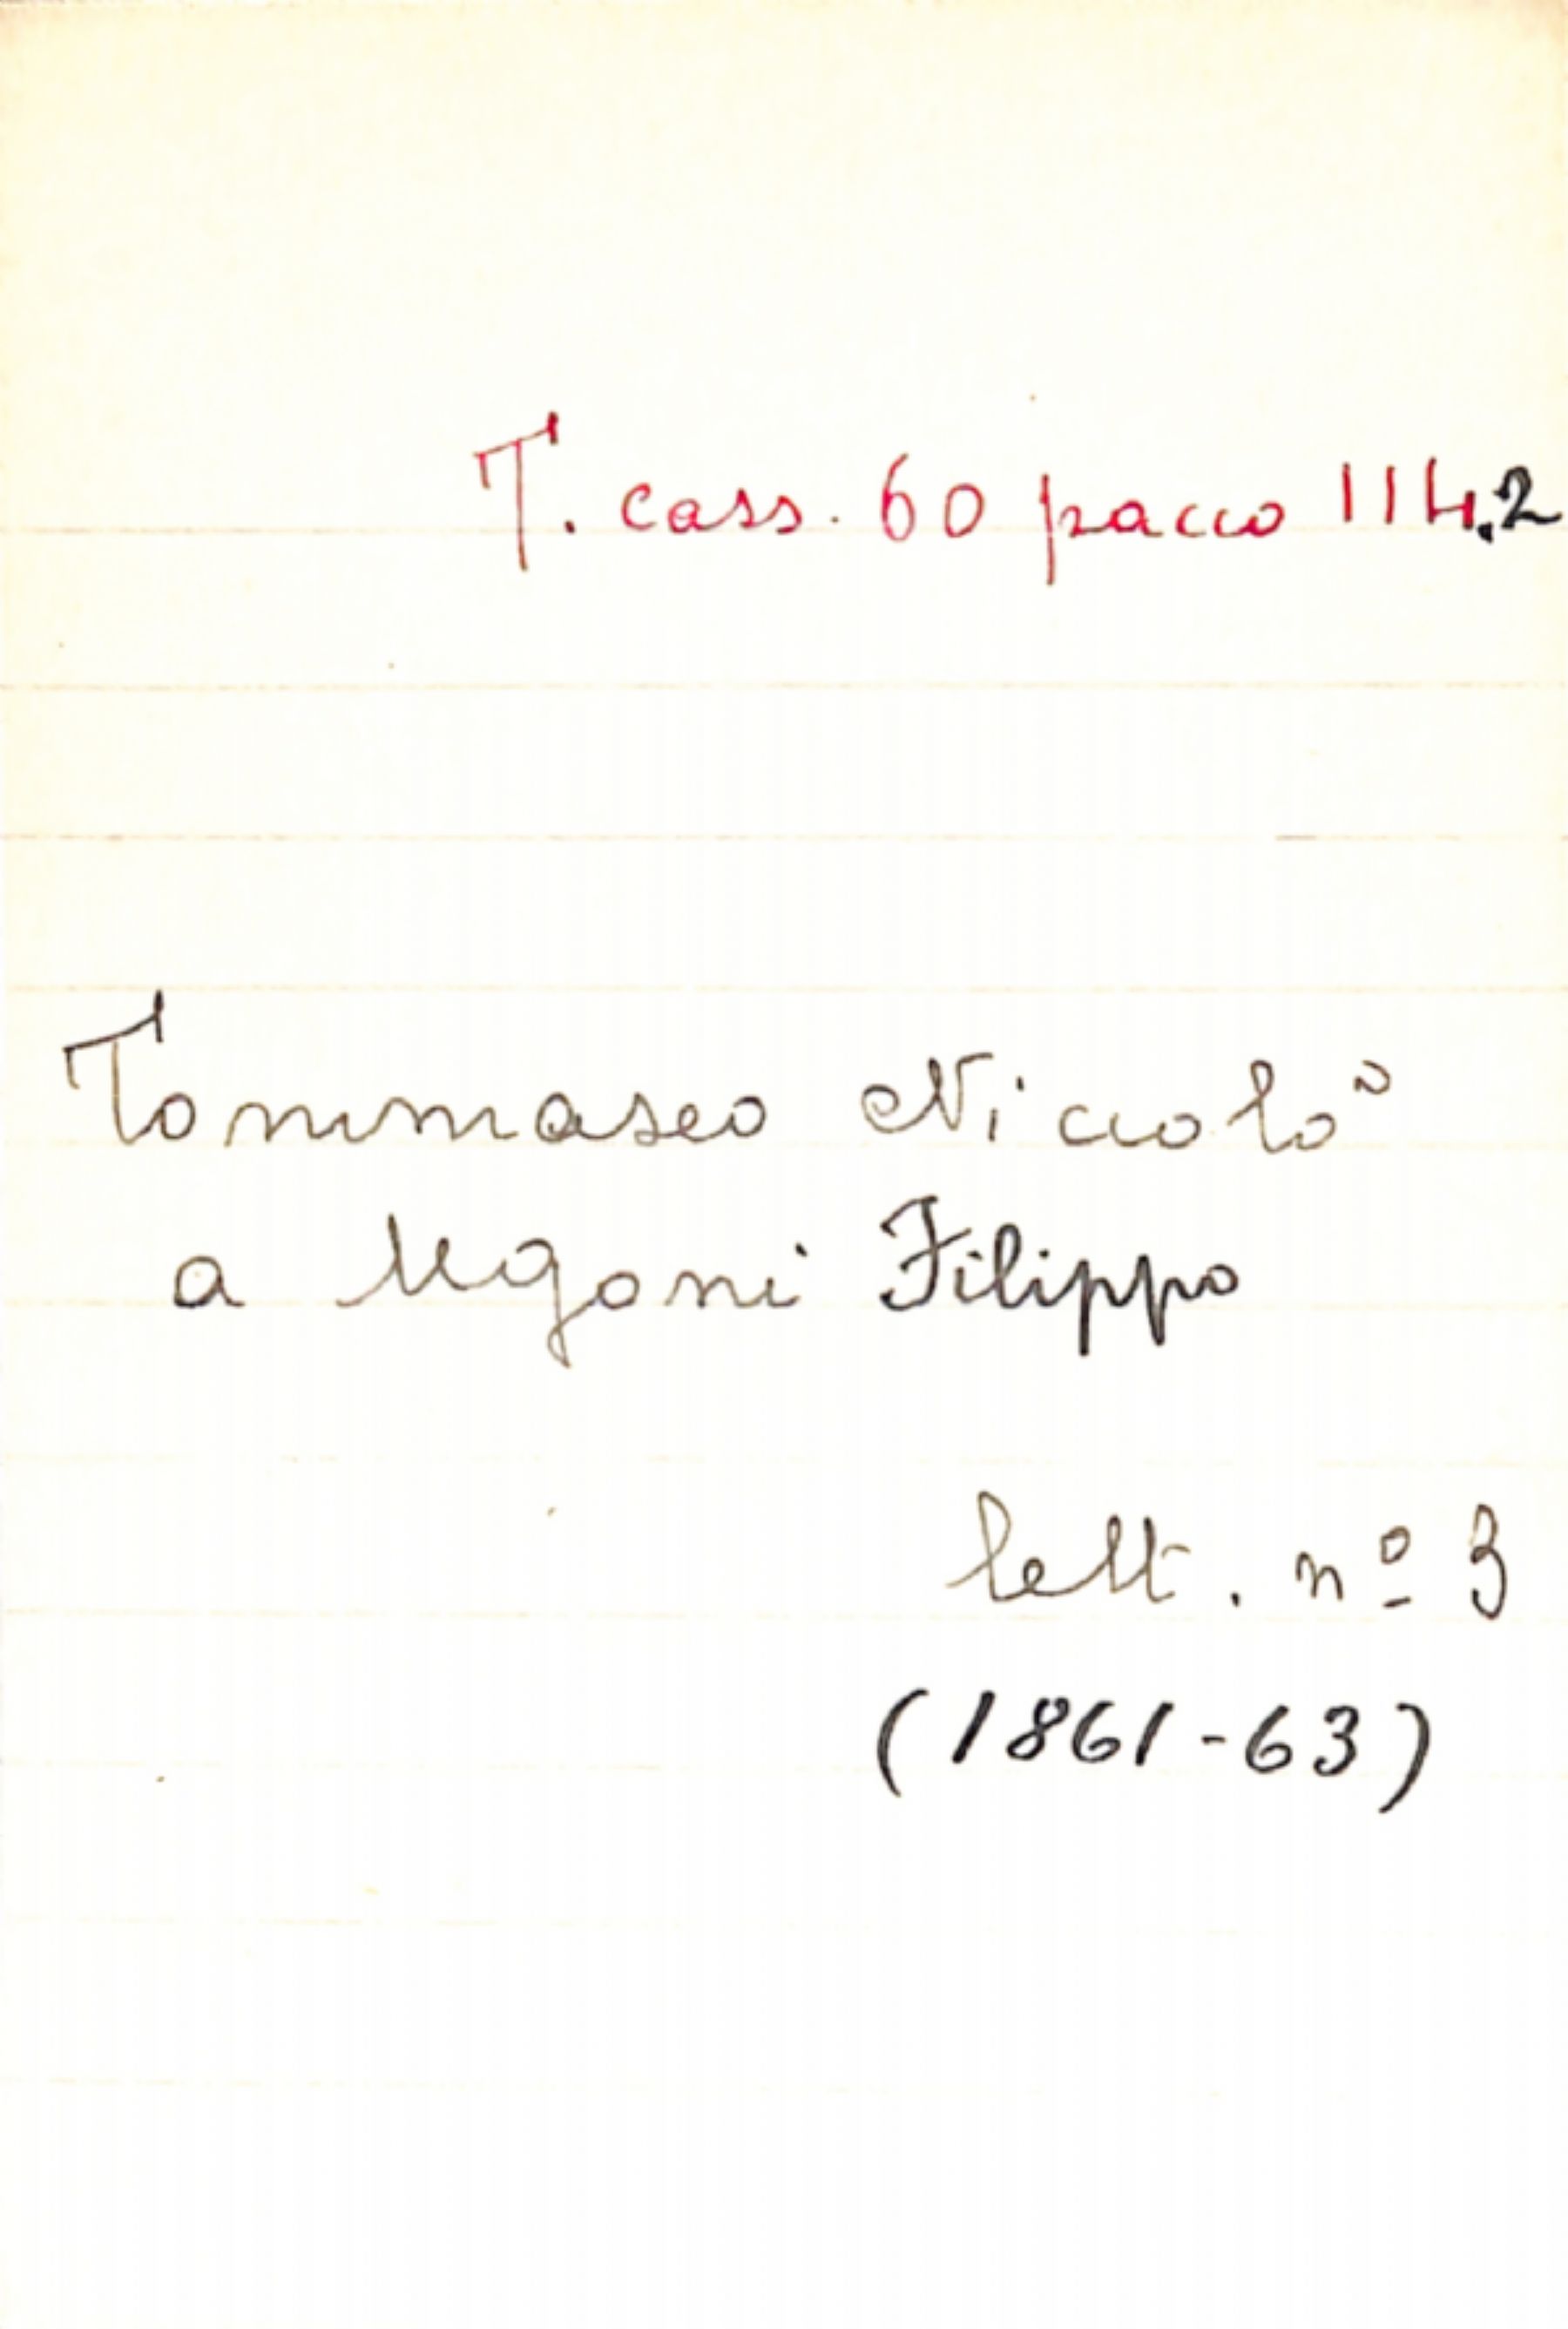 T. cass. 60 pacco 114.2
Tommaseo Niccolò
a Ugoni Filippo
lett. nº 3
(1861-63)